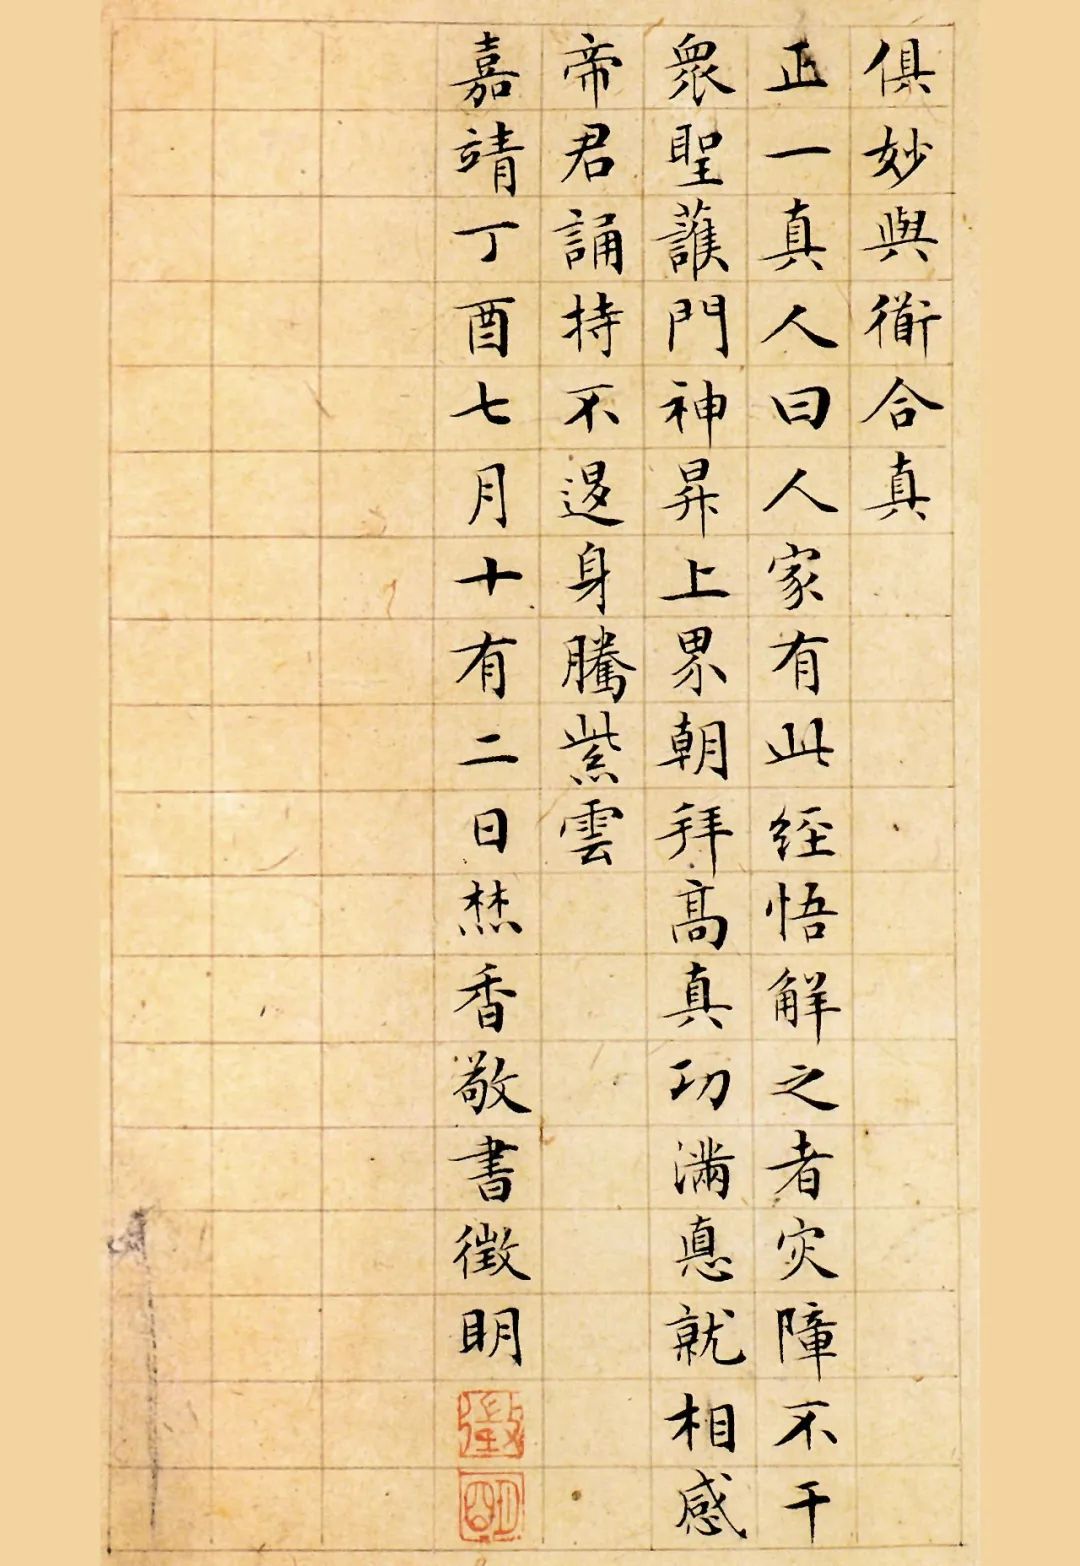 俱妙與衜合真
正一真人曰人家有此經悟解之者灾障不干
衆聖護門神昇上界朝拜髙真功滿悳就相感
帝君誦持不退身騰紫雲
嘉靖丁酉七月十有二日焚香敬書徵明
徵
明